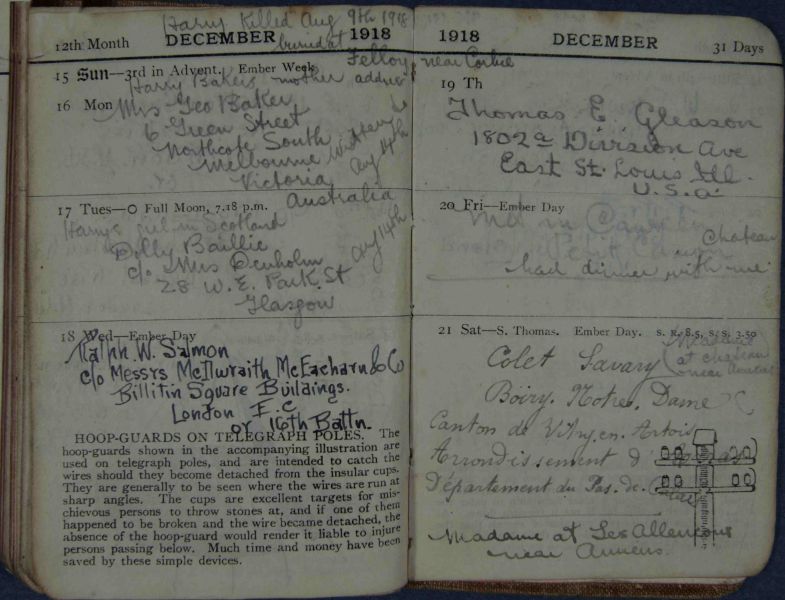 Harry Killed Aug 9th 1918
12th Month DECEMBER 1918
buried at
15 Sun—3rd in Advent. Ember Week
Harry Bakers mother address
16 Mon Mrs Geo Baker
6 Green Street
Northcote South
Melbourne
Victoria
Australia
written
Aug 14th
17 Tues—O Full Moon, 7.18 p.m.
Harrys in Scotland
Dolly Baillie
c/o Mrs Denholm
28 W. E. Park St
Glasgow
Aug 14th
18 Wed—Ember Day
Ralph W. Salmon
c/o Messrs McIlwraith McEacharn & Co
Billitin Square Buildings.
London E.C
or 16th Battn.
HOOP-GUARDS ON TELEGRAPH POLES. The
hoop-guards shown in the accompanying illustration are
used on telegraph poles, and are intended to catch the
wires should they become detached from the insular cups.
They are generally to be seen where the wires are run at
sharp angles. The cups are excellent targets for mis-
chievous persons to throw stones at, and if one of them
happened to be broken and the wire became detached, the
absence of the hoop-guard would render it liable to injure
persons passing below. Much time and money have been
saved by these simple devices.
1918 DECEMBER 31 Days
near Corbie
19 Th
Thomas E. Gleason
1802a Division Ave
East St. Louis Ill.
U.S.a.
20 Fri—Ember Day
in
Chateau
had dinner with me
21 Sat—S. Thomas. Ember Day. S. R. 8.5, S. S. 3.50
Madame
at chateau
near
Colet Savary
Boiry. Notre. Dame
Canton de Vitry. en. Artois
Arrondissement d'
Département du Pas. de.
Madame at
near Amiens.